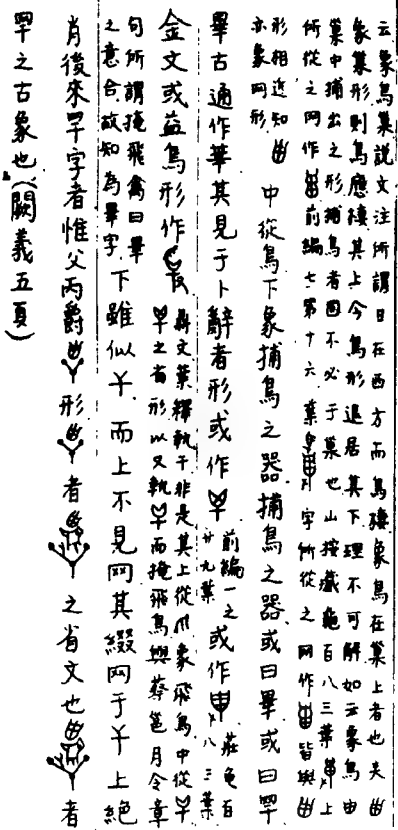 云象鳥巢說文注所謂日在西方而鳥棲象鳥在巢上者也夫
象巢形則鳥應棲其上今鳥形退居其下理不可解如云象鳥由
巢中捕出之形捕鳥者固不必于巢也山按藏龜百八三葉上
所從之网作前編七第十六葉字所從之网作皆與
形相近知
亦象网形
中從鳥下象捕鳥之器捕鳥之器或曰畢或曰䍐
畢古通作華其見于卜辭者形或作
前編一之
廿九葉
或作
龜百
八三葉
金文或益鳥形作
鼎文葉釋執干非是其上從象飛鳥中從
之省形以又執而掩飛鳥與蔡邕月令章
句所謂掩飛禽曰畢
之意合故知為畢字
下雖似丫而上不見网其綴网于丫上絕
肖後來䍐字者惟父丙爵形者之省文也者
䍐之古象也(闕義五頁)